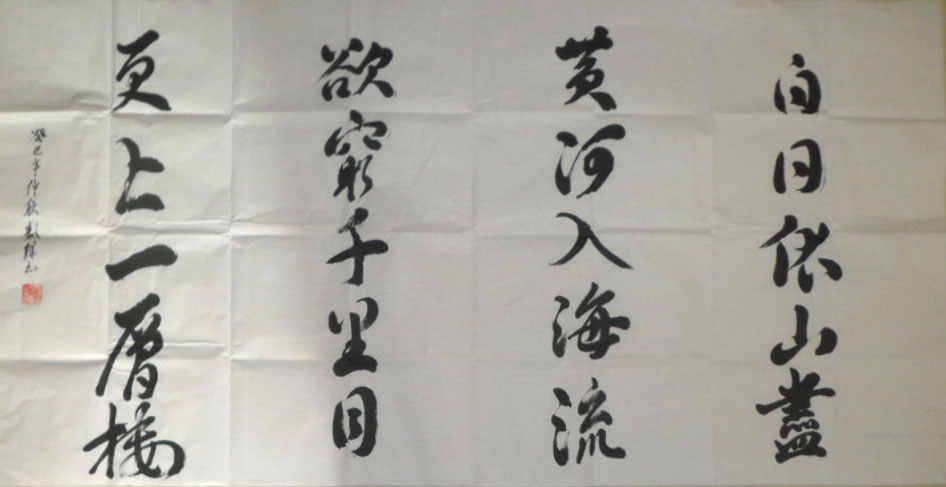 白日依山盡
黄河入海流
欲窮千里目
更上一層樓
癸巳年仲秋